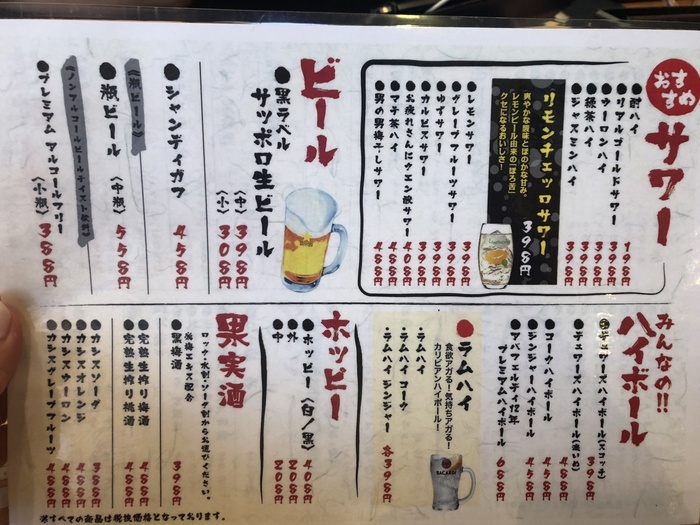 おすすめ
サワー
●酎ハイ 198円
●リアルゴールドサワー 398円
●ウーロンハイ 398円
●緑茶ハイ 398円
●ジャスミンハイ 398円
リモンチェッロサワー 398円
爽やかな酸味とほのかな甘み。
レモンピール由来の「ほろ苦」
クセになるおいしさ!
●レモンサワー 398円
●グレープフルーツサワー 398円
●ゆずサワー 398円
●カルピスサワー 398円
●お疲れさんにクエン酸サワー 408円
●マテ茶ハイ 398円
●男の梅干しサワー 488円
ビール
●黒ラベル
サッポロ生ビール
〈中〉398円
〈小〉308円
●シャンディガフ 458円
《瓶ビール》
●瓶ビール 〈中瓶〉 558円
《ノンアルコールビールテイスト飲料》
●プレミアム アルコールフリー 〈小瓶〉 388円
みんなの!!
ハイボール
●デュワーズハイボール(スコッチ) 398円
●デュワーズハイボール(濃いめ)
●コークハイボール 458円
●ジンジャーハイボール 458円
●アバフェルディ12年
プレミアムハイボール 658円
●ラムハイ
食欲アガる!気持ちアガる!
カリビアンハイボール!
BACARDI
・ラムハイ
・ラムハイ コーク
・ラムハイ ジンジャー
各398円
ホッピー
●ホッピー〈白/黒〉 408円
●外 208円
●中 208円
果実酒
ロック・水割・ソーダ割からお選びください。
●黒梅酒 398円
●完熟生搾り梅酒 488円
●完熟生搾り桃酒 488円
●カシスソーダ 388円
●カシスオレンジ 488円
●カシスウーロン 488円
●カシスグレープフルーツ 488円
※すべての商品は税抜価格となっております。